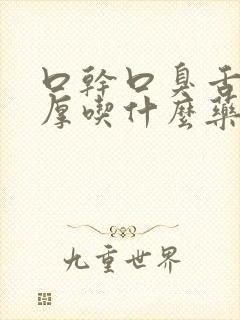 口幹口臭舌
厚喫什麼藥
九重世界